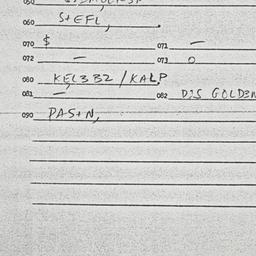 060 S+EFL,
070 $ 071 —
072 — 073 0
080 KEL3 B2 / KALP
081 — 082 DIS GOLDEN
090 PAS+N,